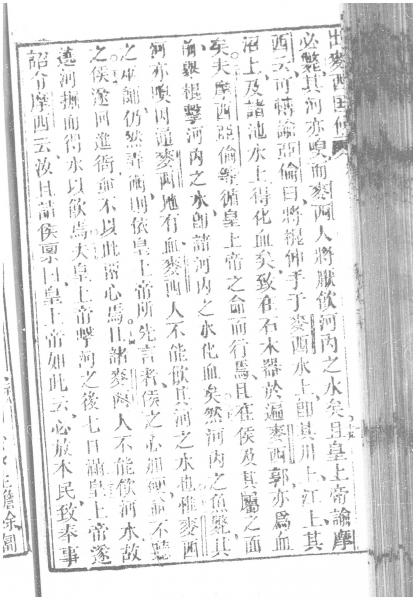 出麥西国傳
必斃其河亦嗅而麥西人將厭飲河內之水矣且皇上帝諭摩
西云可轉諭亞倫曰將棍伸手于麥西水上卽其川上江上其
沼上及諸池水上得化血矣致在石木器於遍麥西郭亦爲血
矣夫摩西亞倫等循皇上帝之命而行焉且在侯及其屬之面
前舉棍擊河內之水卽諸河內之水化血矣然河內之魚斃其
河亦嗅因遍麥西地有血麥西人不能飲其河之水也惟麥西
之巫師仍然善術則依皇上帝所先言者侯之心加硬而不聽
之侯遂回進衙而不以此留心焉且諸麥西人不能飲河水故
遶河掘而得水以飲焉夫皇上帝擊河之後七日滿皇上帝遂
詔令摩西云汝且詣侯稟曰皇上帝如此云必放本民致奉事